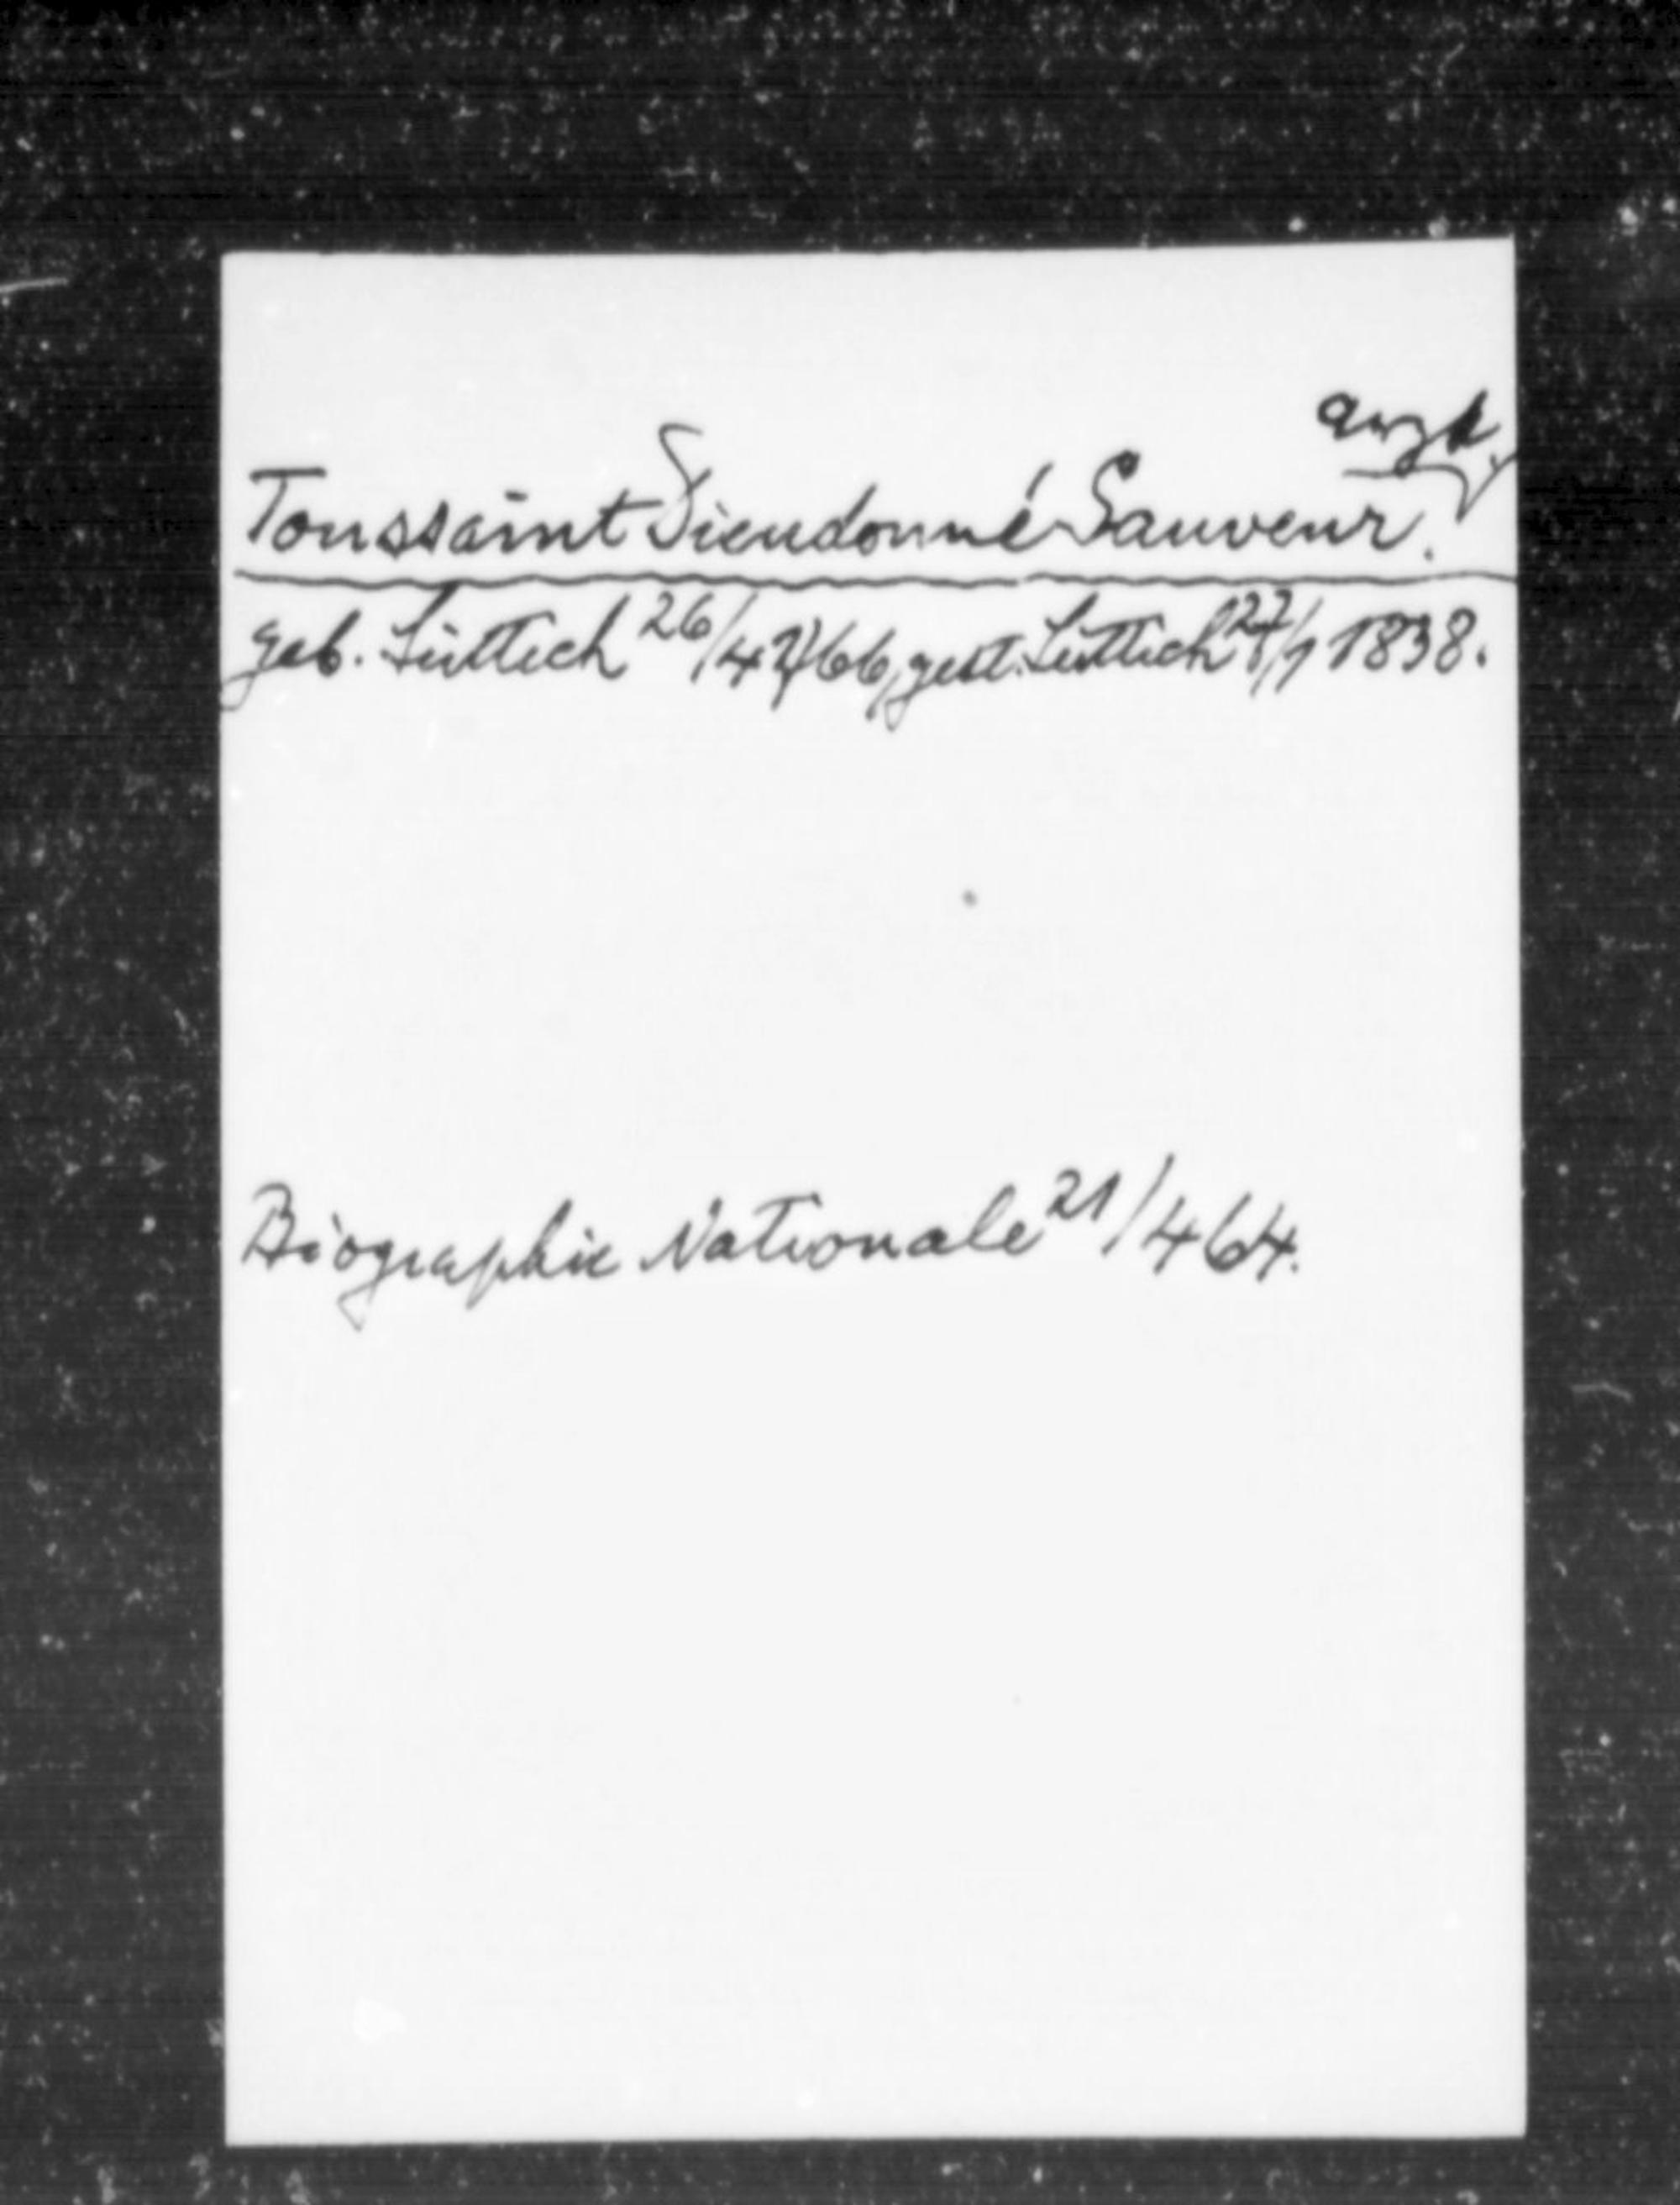 Arzt.
Toussaint Dieudonné Sauveur.
geb. Lüttich 26/4 1766, gest. Lüttich 27/1 1838.
Biographie Nationale 21/464.